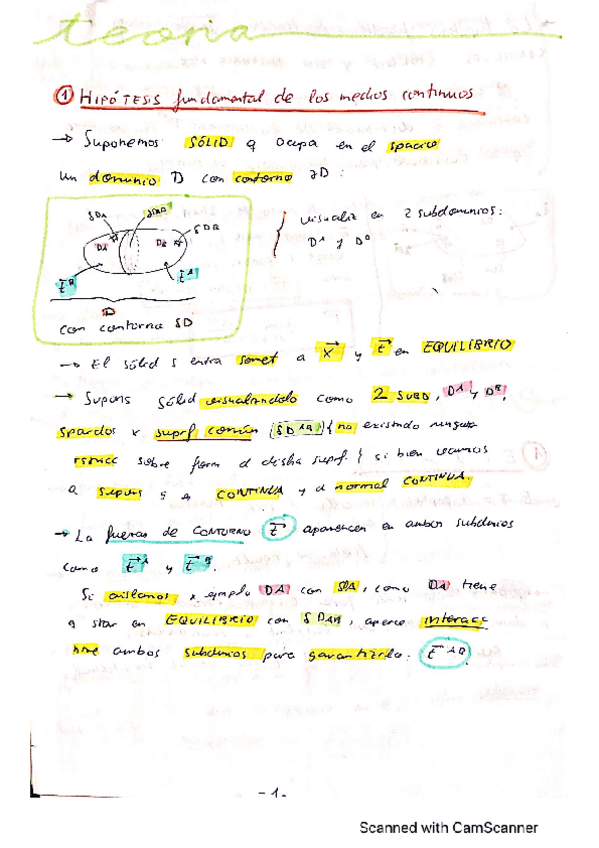 teoria
① HIPÓTESIS fundamental de los medios continuos
→ Suponemos SÓLID q ocupa en el spacio
un dominio D con contorno ∂D :
δDA
δDAB
δDB
DA
DB
t^B
t^A
D
con contorno δD
visualiz en 2 subdominios:
D^A y D^B
→ El sólid s entra somet a X y t en EQUILIBRIO
→ Supons sólid visualizándolo como 2 SUBD, D^A y D^B,
spardos x suprf común (δD^AB) { no existndo ninguna
sobre form d dicha suprf. } si bien vamos
a supons q s CONTINUA y d normal CONTINUA.
→ La fuerzas de CONTORNO t aparencen en ambos subdinios
como t^A y t^B.
Si aislamos x ejemplo DA con δDA, como DA tiene
q star en EQUILIBRIO con δDAB, aperce interacc
ntre ambos subdinios para garantizrla: t^AB.
- 1 -
Scanned with CamScanner